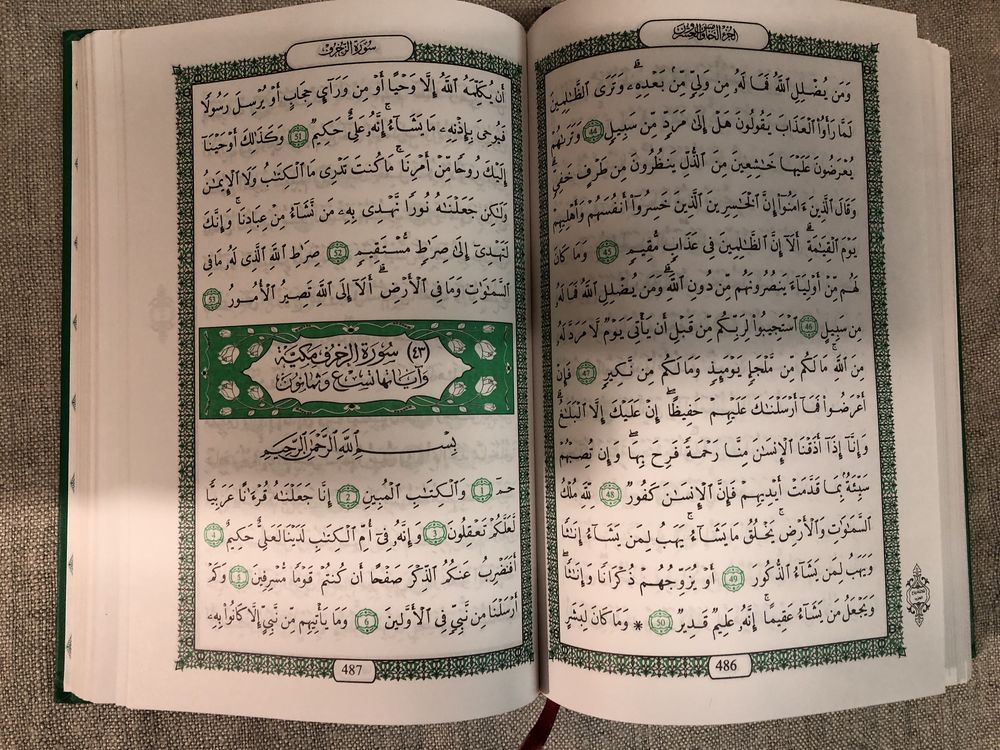 الجزء الخامس والعشرون
وَمَن يُضْلِلِ ٱللَّهُ فَمَا لَهُۥ مِن وَلِىٍّ مِّنۢ بَعْدِهِۦ ۗ وَتَرَى ٱلظَّـٰلِمِينَ
لَمَّا رَأَوُا۟ ٱلْعَذَابَ يَقُولُونَ هَلْ إِلَىٰ مَرَدٍّ مِّن سَبِيلٍ 44 وَتَرَىٰهُمْ
يُعْرَضُونَ عَلَيْهَا خَـٰشِعِينَ مِنَ ٱلذُّلِّ يَنظُرُونَ مِن طَرْفٍ خَفِىٍّ ۗ
وَقَالَ ٱلَّذِينَ ءَامَنُوٓا۟ إِنَّ ٱلْخَـٰسِرِينَ ٱلَّذِينَ خَسِرُوٓا۟ أَنفُسَهُمْ وَأَهْلِيهِمْ
يَوْمَ ٱلْقِيَـٰمَةِ ۗ أَلَآ إِنَّ ٱلظَّـٰلِمِينَ فِى عَذَابٍ مُّقِيمٍ 45 وَمَا كَانَ
لَهُم مِّنْ أَوْلِيَآءَ يَنصُرُونَهُم مِّن دُونِ ٱللَّهِ ۗ وَمَن يُضْلِلِ ٱللَّهُ فَمَا لَهُۥ
مِن سَبِيلٍ 46 ٱسْتَجِيبُوا۟ لِرَبِّكُم مِّن قَبْلِ أَن يَأْتِىَ يَوْمٌ لَّا مَرَدَّ لَهُۥ
مِنَ ٱللَّهِ ۚ مَا لَكُم مِّن مَّلْجَإٍ يَوْمَئِذٍ وَمَا لَكُم مِّن نَّكِيرٍ 47 فَإِنْ
أَعْرَضُوا۟ فَمَآ أَرْسَلْنَـٰكَ عَلَيْهِمْ حَفِيظًا ۖ إِنْ عَلَيْكَ إِلَّا ٱلْبَلَـٰغُ ۗ
وَإِنَّآ إِذَآ أَذَقْنَا ٱلْإِنسَـٰنَ مِنَّا رَحْمَةً فَرِحَ بِهَا ۖ وَإِن تُصِبْهُمْ
سَيِّئَةٌۢ بِمَا قَدَّمَتْ أَيْدِيهِمْ فَإِنَّ ٱلْإِنسَـٰنَ كَفُورٌ 48 لِّلَّهِ مُلْكُ
ٱلسَّمَـٰوَٰتِ وَٱلْأَرْضِ ۚ يَخْلُقُ مَا يَشَآءُ ۚ يَهَبُ لِمَن يَشَآءُ إِنَـٰثًا
وَيَهَبُ لِمَن يَشَآءُ ٱلذُّكُورَ 49 أَوْ يُزَوِّجُهُمْ ذُكْرَانًا وَإِنَـٰثًا ۖ
وَيَجْعَلُ مَن يَشَآءُ عَقِيمًا ۚ إِنَّهُۥ عَلِيمٌ قَدِيرٌ 50 * وَمَا كَانَ لِبَشَرٍ
486
سورة الزخرف
أَن يُكَلِّمَهُ ٱللَّهُ إِلَّا وَحْيًا أَوْ مِن وَرَآئِ حِجَابٍ أَوْ يُرْسِلَ رَسُولًا
فَيُوحِىَ بِإِذْنِهِۦ مَا يَشَآءُ ۚ إِنَّهُۥ عَلِىٌّ حَكِيمٌ 51 وَكَذَٰلِكَ أَوْحَيْنَآ
إِلَيْكَ رُوحًا مِّنْ أَمْرِنَا ۚ مَا كُنتَ تَدْرِى مَا ٱلْكِتَـٰبُ وَلَا ٱلْإِيمَـٰنُ
وَلَـٰكِن جَعَلْنَـٰهُ نُورًا نَّهْدِى بِهِۦ مَن نَّشَآءُ مِنْ عِبَادِنَا ۚ وَإِنَّكَ
لَتَهْدِىٓ إِلَىٰ صِرَٰطٍ مُّسْتَقِيمٍ 52 صِرَٰطِ ٱللَّهِ ٱلَّذِى لَهُۥ مَا فِى
ٱلسَّمَـٰوَٰتِ وَمَا فِى ٱلْأَرْضِ ۗ أَلَآ إِلَى ٱللَّهِ تَصِيرُ ٱلْأُمُورُ 53
(٤٣) سورة الزخرف مكية
وآياتها تسع وثمانون
بِسْمِ ٱللَّهِ ٱلرَّحْمَـٰنِ ٱلرَّحِيمِ
حمٓ 1 وَٱلْكِتَـٰبِ ٱلْمُبِينِ 2 إِنَّا جَعَلْنَـٰهُ قُرْءَٰنًا عَرَبِيًّا
لَّعَلَّكُمْ تَعْقِلُونَ 3 وَإِنَّهُۥ فِىٓ أُمِّ ٱلْكِتَـٰبِ لَدَيْنَا لَعَلِىٌّ حَكِيمٌ 4
أَفَنَضْرِبُ عَنكُمُ ٱلذِّكْرَ صَفْحًا أَن كُنتُمْ قَوْمًا مُّسْرِفِينَ 5 وَكَمْ
أَرْسَلْنَا مِن نَّبِىٍّ فِى ٱلْأَوَّلِينَ 6 وَمَا يَأْتِيهِم مِّن نَّبِىٍّ إِلَّا كَانُوا۟ بِهِۦ
487